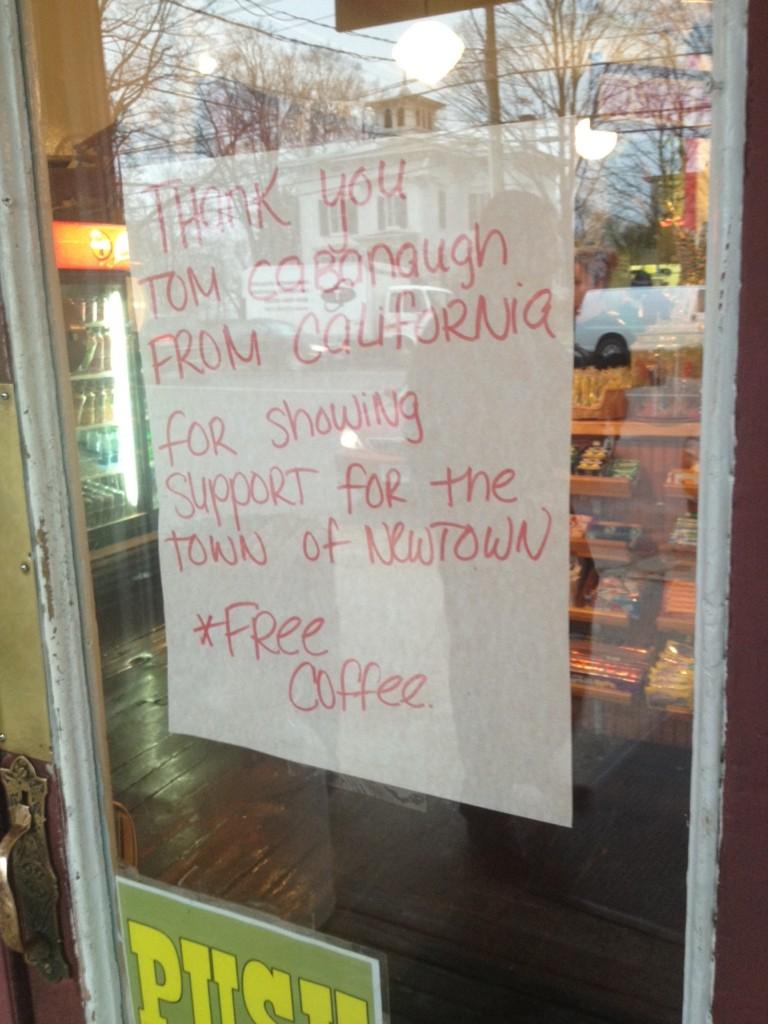 THANK YOU
TOM CABANAUGH
FROM CALIFORNIA
FOR SHOWING
SUPPORT FOR THE
TOWN OF NEWTOWN
*FREE
COFFEE.
PUSH